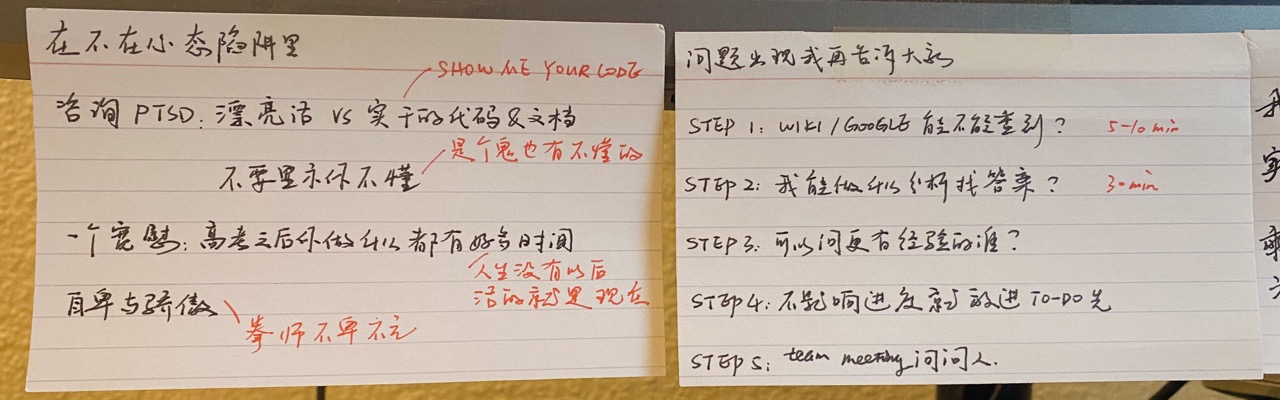 在不在心态陷阱里
SHOW ME YOUR CODE
咨询 PTSD: 漂亮话 VS 实干的代码&文档
是个鬼也有不懂的
不要显示你不懂
一个宽慰: 高考之后你做什么都有好多时间
人生没有以后
活的就是现在
自卑与骄傲
拳师不卑不亢
问题出现我再告诉大家
STEP 1: WIKI/GOOGLE 能不能查到? 5-10 min
STEP 2: 我能做什么分析找答案? 30 min
STEP 3: 可以问更有经验的谁?
STEP 4: 不影响进度就放进 TO-DO 先
STEP 5: team meeting 问问人.